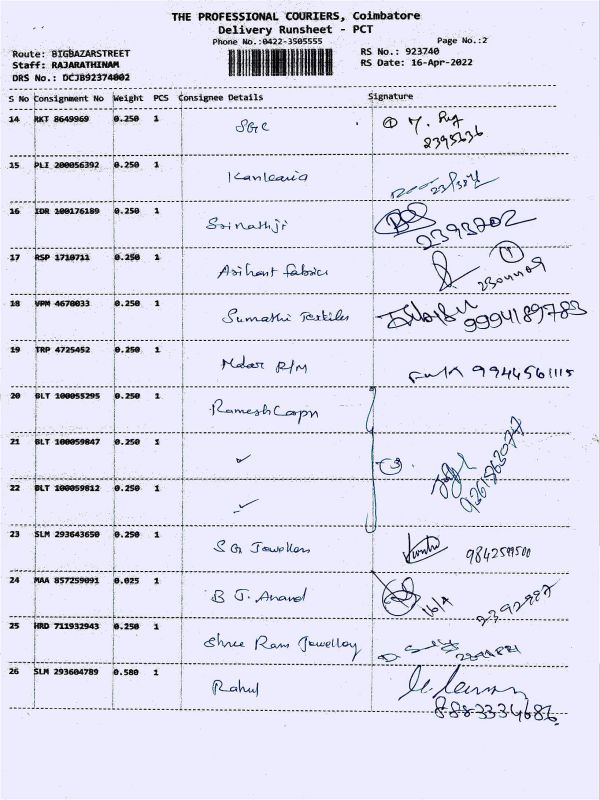 THE PROFESSIONAL COURIERS, Coimbatore
Delivery Runsheet - PCT
Phone No.:0422-3505555 Page No.:2
Route: BIGBAZARSTREET RS No.: 923740
Staff: RAJARATHINAM RS Date: 16-Apr-2022
DRS No.: DCJB92374002
S No Consignment No Weight PCS Consignee Details Signature
14 RKT 8649969 0.250 1 SGC
2395636
15 PLI 200056392 0.250 1 Kankaria
16 IDR 100176189 0.250 1 Srinathji
2393202
17 RSP 1710711 0.250 1 Arihant fabrics
18 VPM 4670033 0.250 1 Sumathi Textiles 9994189783
19 TRP 4725452 0.250 1 9944561115
20 BLT 100055295 0.250 1 Ramesh Corpn
21 BLT 100059847 0.250 1 ✓
22 BLT 100059812 0.250 1 ✓
23 SLM 293643650 0.250 1 S G Jewellers
24 MAA 857259091 0.025 1 B J. Anand 16/4
25 HRD 711932943 0.250 1 Shree Ram Jewellery
26 SLM 293604789 0.500 1 Rahul
8883334686